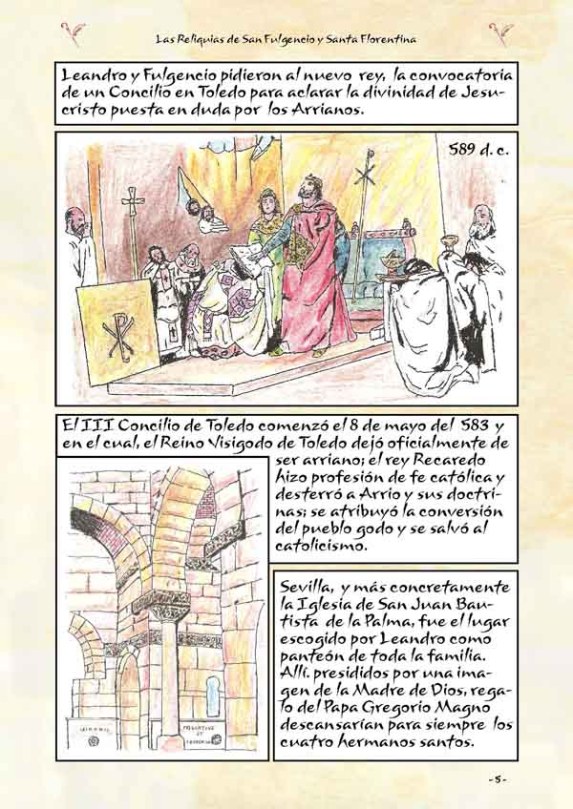 Las Reliquias de San Fulgencio y Santa Florentina
Leandro y Fulgencio pidieron al nuevo rey, la convocatoria
de un Concilio en Toledo para aclarar la divinidad de Jesu-
cristo puesta en duda por los Arrianos.
589 d. c.
El III Concilio de Toledo comenzó el 8 de mayo del 583 y
en el cual, el Reino Visigodo de Toledo dejó oficialmente de
ser arriano; el rey Recaredo
hizo profesión de fe católica y
desterró a Arrio y sus doctri-
nas; se atribuyó la conversión
del pueblo godo y se salvó al
catolicismo.
Sevilla, y más concretamente
la Iglesia de San Juan Bau-
tista de la Palma, fue el lugar
escogido por Leandro como
panteón de toda la familia.
Allí, presididos por una ima-
gen de la Madre de Dios, rega-
lo del Papa Gregorio Magno
descansarían para siempre los
cuatro hermanos santos.
-5-